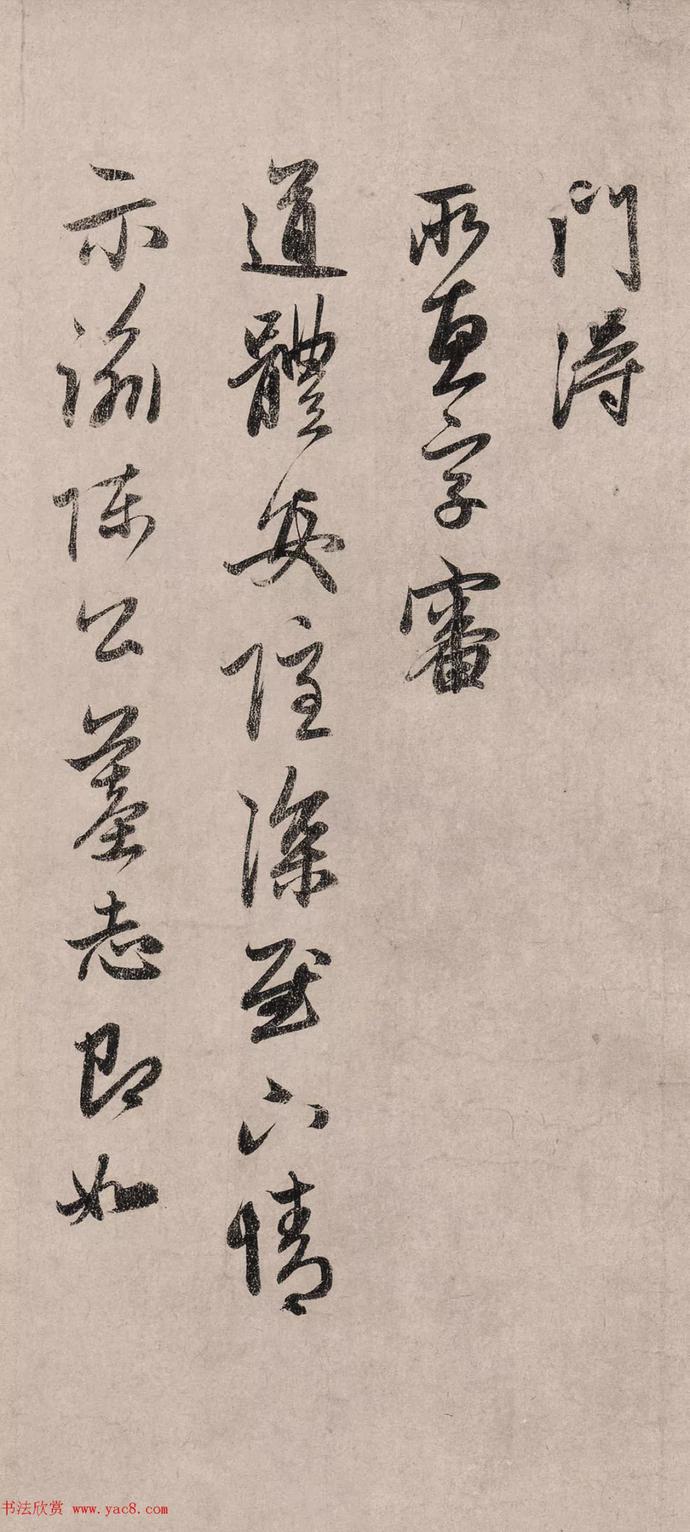 門得
所惠字審
道體安隱深慰下情
示諭陳公墓志即如
书法欣赏 www.yac8.com